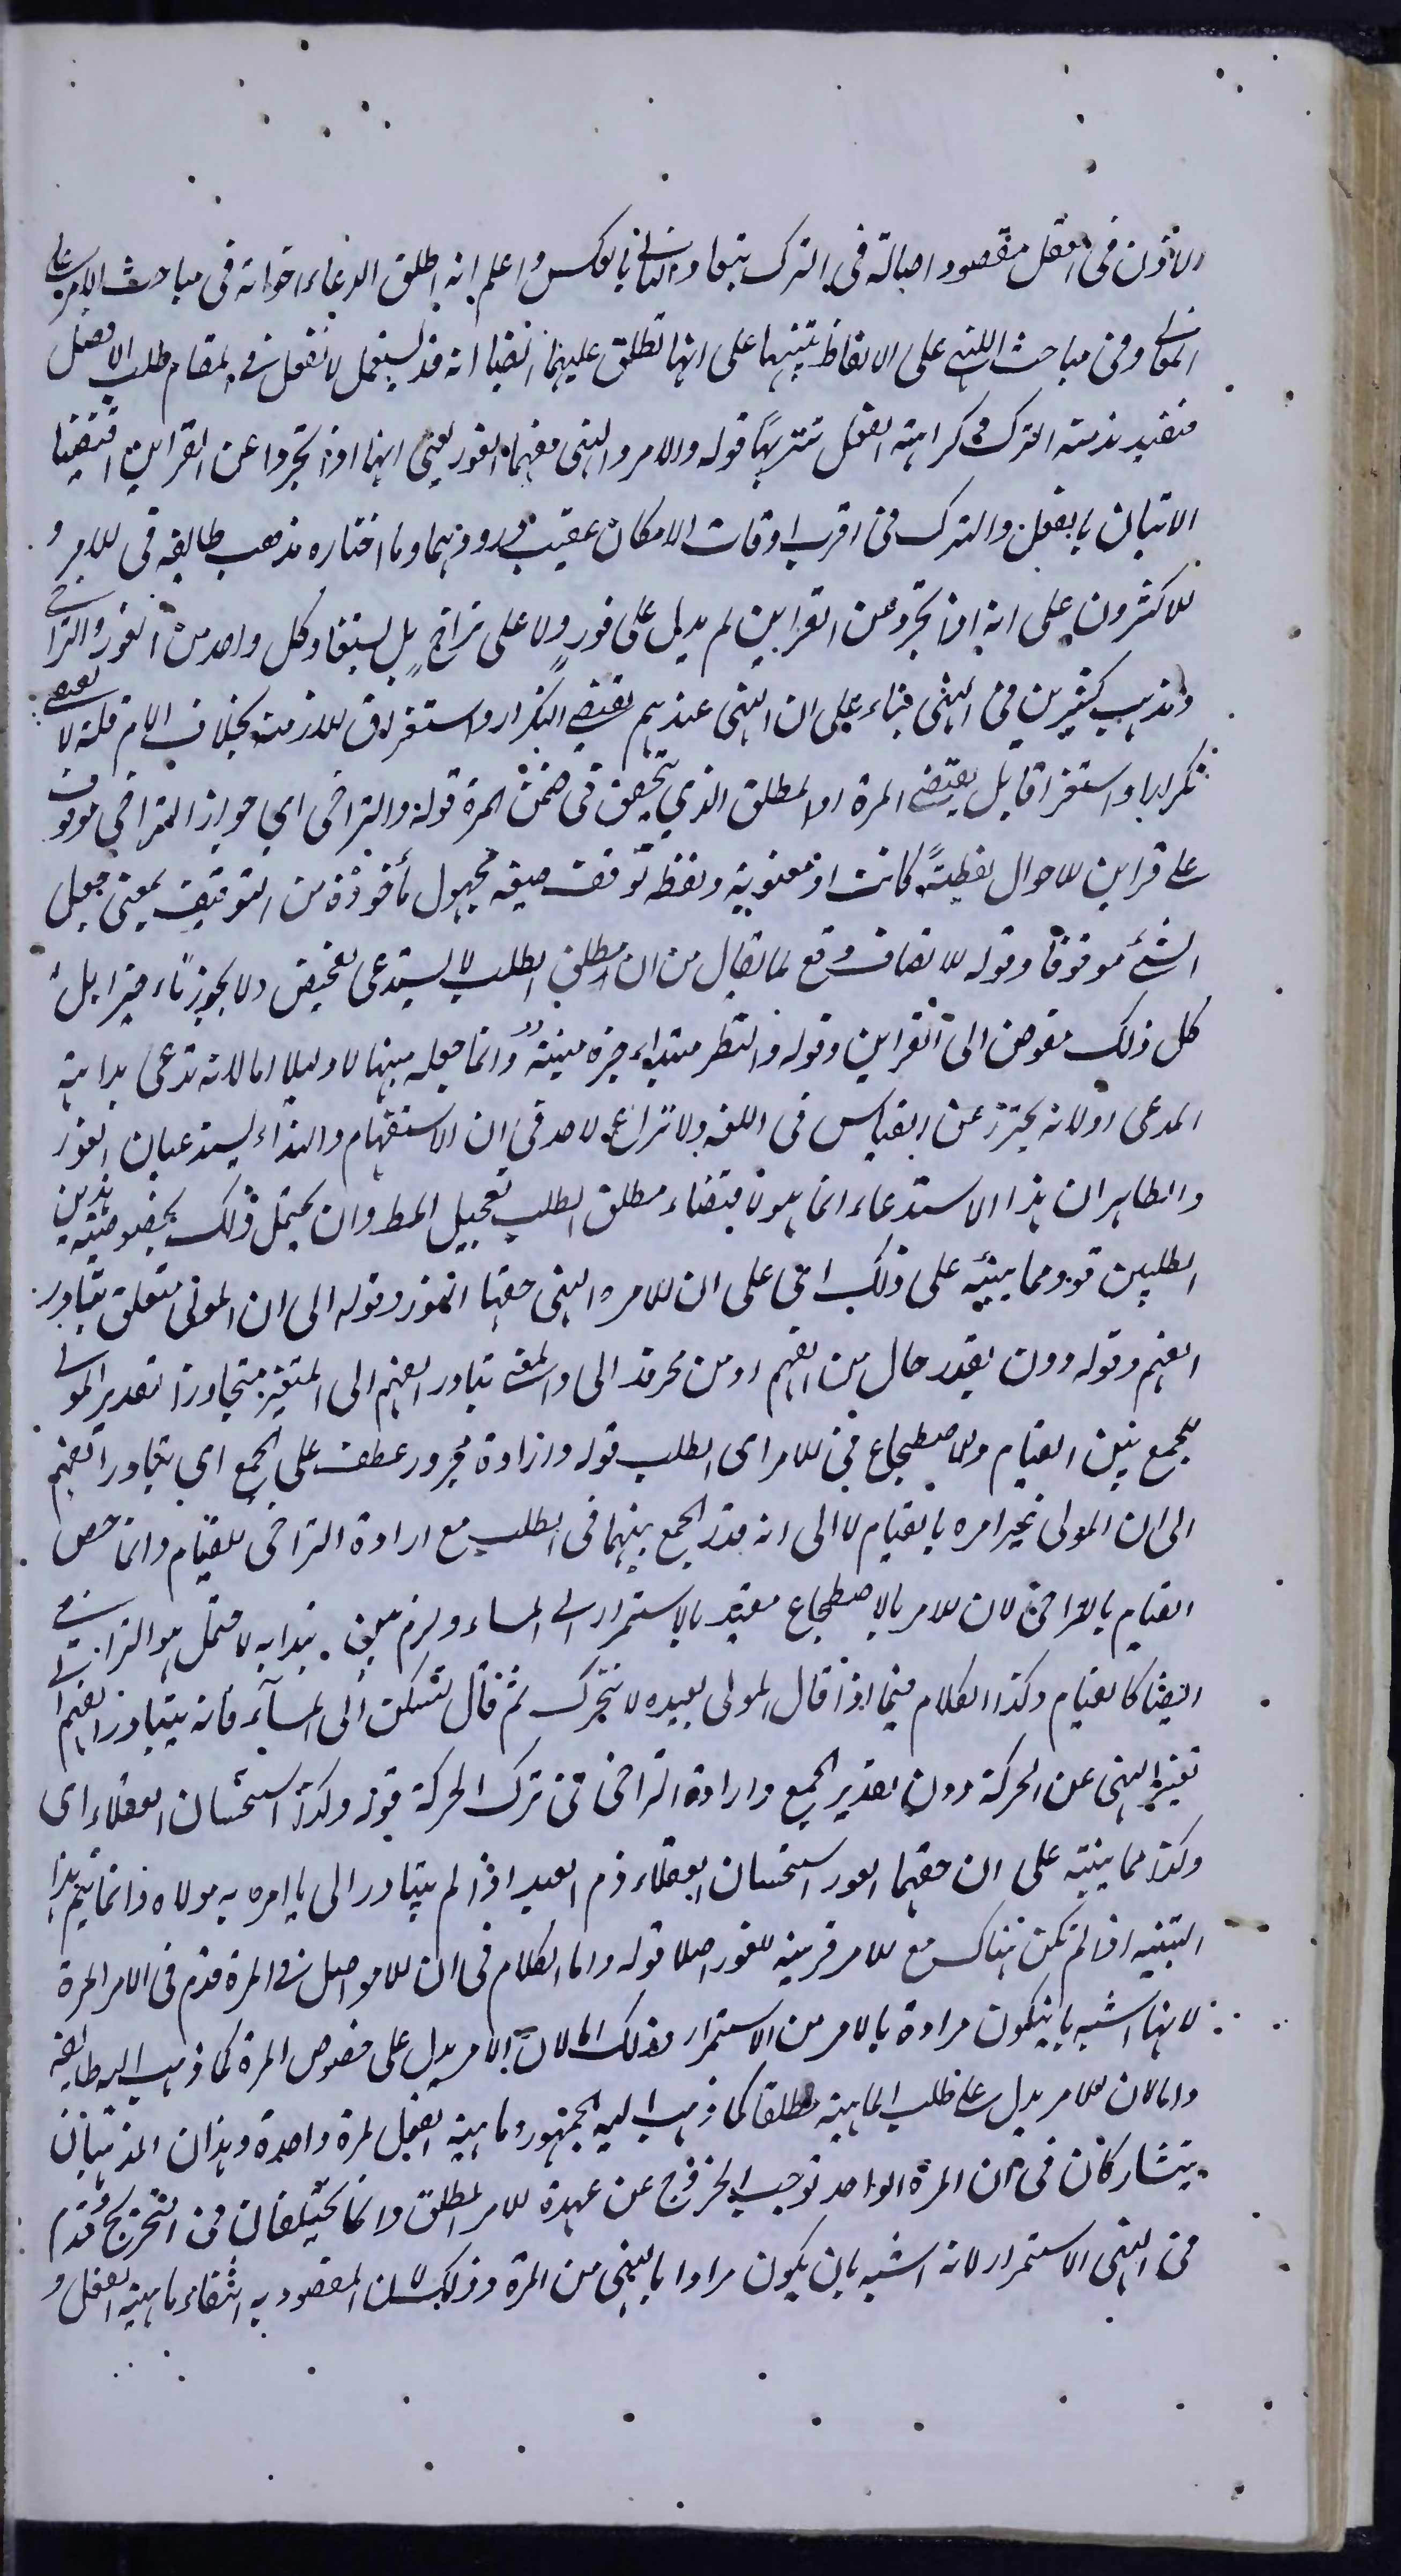 الاذن فى الفعل مقصود اصالة فى الترك تبعا والثانى بالعكس واعلم انه اطلق الدعاء اخواته فى مباحث الامر على
المعانى وفى مباحث النهى على الالفاظ تنبيها على انها تطلق عليهما ايضا انه قد يستعمل لا تفعل فى مقام طلب الافضل
فيفيد ندبية الترك وكراهته الفعل تنزيها قوله والامر والنهى حقهما الفور يعنى انهما اذا تجردا عن القراين اقتضيا
الاتيان بالفعل والترك فى اقرب اوقات الامكان عقيب ورودهما وما اختاره مذهب طائفة فى الامر و
الاكثرون على انه اذا تجرد عن القراين لم يدل على فور ولا على تراخ بل يستفاد كل واحد من الفور والتراخى
ومذهب كثيرين فى النهى بناء على ان النهى عندهم يقتضى التكرار واستغراق الازمنة بخلاف الامر فانه لا يقتضى
تكرارا واستغراقا بل يقتضى المرة او المطلق الذى يتحقق فى ضمن المرة قوله والتراخى اى جواز التراخى موقوف
على قراين الاحوال لفظية كانت او معنوية ولفظ توقف صيغة مجهول مأخوذة من التوقيف بمعنى جعل
الشئ موقوفا وقوله للانصاف دفع لما يقال من ان مطلق الطلب لا يستدعى ولا يجوز بل
كل ذلك مفوض الى القراين وقوله والنظر مبتداء خبره منبه وانما جعله منبها لا دليلا اما لانه تدعى بداهة
المدعى او لانه يحترز عن القياس فى اللغة ولا نزاع لاحد فى ان الاستفهام والنداء يستدعيان الفور
والظاهر ان هذا الاستدعاء انما هو لاقتضاء مطلق الطلب تعجيل المط وان يحتمل ذلك بخصوصية هذين
الطلبين قوله ومما ينبه على ذلك اى على ان الامر والنهى حقهما الفور وقوله الى ان المولى متعلق بتبادر
الفهم وقوله دون تقدير حال من الفهم او من مجروره الى والمعنى تبادر الفهم الى التغير متجاوزا تقدير المولى
للجمع بين القيام والاضطجاع فى الامر اى الطلب قوله وارادة مجرور عطف على الجمع اى يتبادر الفهم
الى ان المولى غير امره بالقيام لا الى انه قدر الجمع بينهما فى الطلب مع ارادة التراخى للقيام وانما خص
القيام بالتراخى لان الامر بالاضطجاع مقيد بالاستمرار الى المساء ولزم هو التراخى
ايضا كالقيام وكذا الكلام فيما اذا قال المولى لعبده لا تتحرك ثم قال لتسكن الى المسآء فانه يتبادر الفهم الى
تغيير النهى عن الحركة دون تقدير الجمع وارادة التراخى فى ترك الحركة قوله وكذا استحسان العقلاء اى
وكذا مما ينبه على ان حقهما الفور استحسان العقلاء ذم العبد اذا لم يتبادر الى ما امره به مولاه وانما يتم هذا
التنبيه اذا لم تكن هناك مع الامر قرينة للفور اصلا قوله واما الكلام فى ان الامر اصل فى المرة قدم فى الامر المرة
لانها اشبه بان يكون مرادة بالامر من الاستمرار وذلك اما لان الامر يدل على خصوص المرة كما ذهب اليه طايفة
واما لان الامر يدل على طلب الماهية مطلقا كما ذهب اليه الجمهور وماهية الفعل لمرة واحدة وهذان المذهبان
يتشاركان فى ان المرة الواحد توجب الخروج عن عهدة الامر المطلق وانما يختلفان فى التخريج وقدم
فى النهى الاستمرار لانه اشبه بان يكون مرادا بالنهى من المرة وذلك لان المقصود به انتفاء ماهية الفعل و